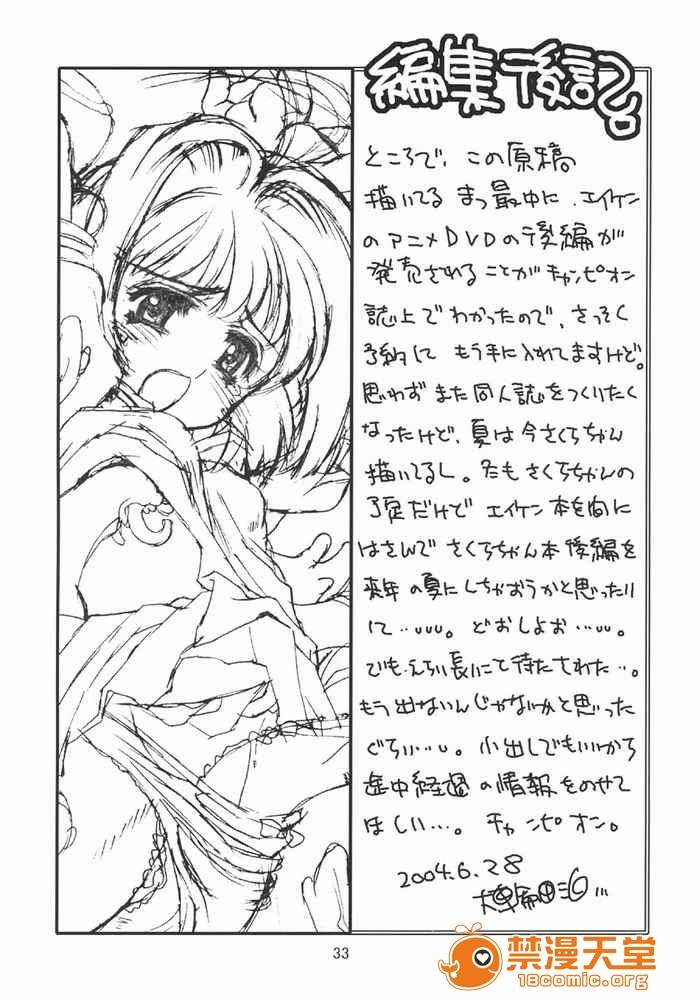 編集後記
ところで、この原稿
描いてる まっ最中に、エイケン
のアニメDVDの後編が
発売されることがチャンピオン
誌上でわかったので、さっそく
予約して もう手に入れてますけど。
思わず また同人誌をつくりたく
なったけど、夏は今さくらちゃん
描いてるし。冬もさくらちゃんの
予定だけど エイケン本を間に
はさんで さくらちゃん本後編を
来年の夏にしちゃおうかと思ったり
して…。どおしよお…。
でも えらい長いこと待たされた…。
もう出ないんじゃないかと思った
ぐらい…。小出しでもいいから
途中経過の情報をのせて
ほしい…。チャンピオン。
2004.6.28
33
禁漫天堂
18comic.org